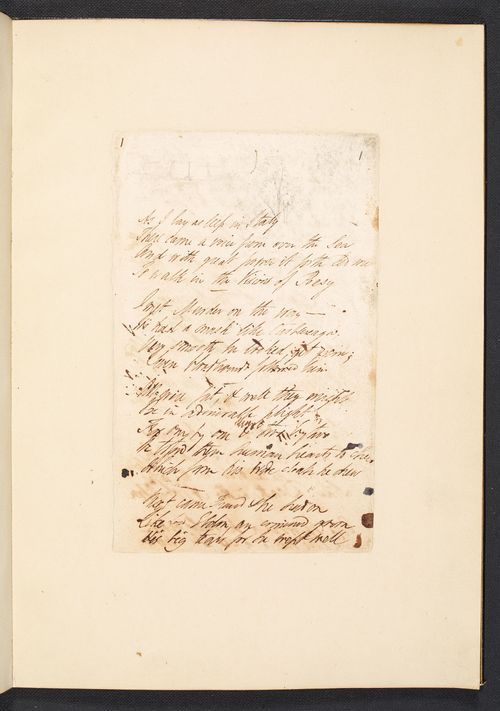 1 1
As I lay asleep in Italy
There came a voice from over the Sea
And with great power it forth led me
To walk in the Visions of Poesy
I met Murder on the way—
He had a mask like Castlereagh
Very smooth he looked, yet grim;
Seven bloodhounds followed him
All were fat, & well they might
Be in admirable plight
For one by one & two by two
He tossed them human hearts to chew
Which from his wide cloak he drew
Next came Fraud & he had on
Like Eldon, an ermined gown
His big tears for he wept well